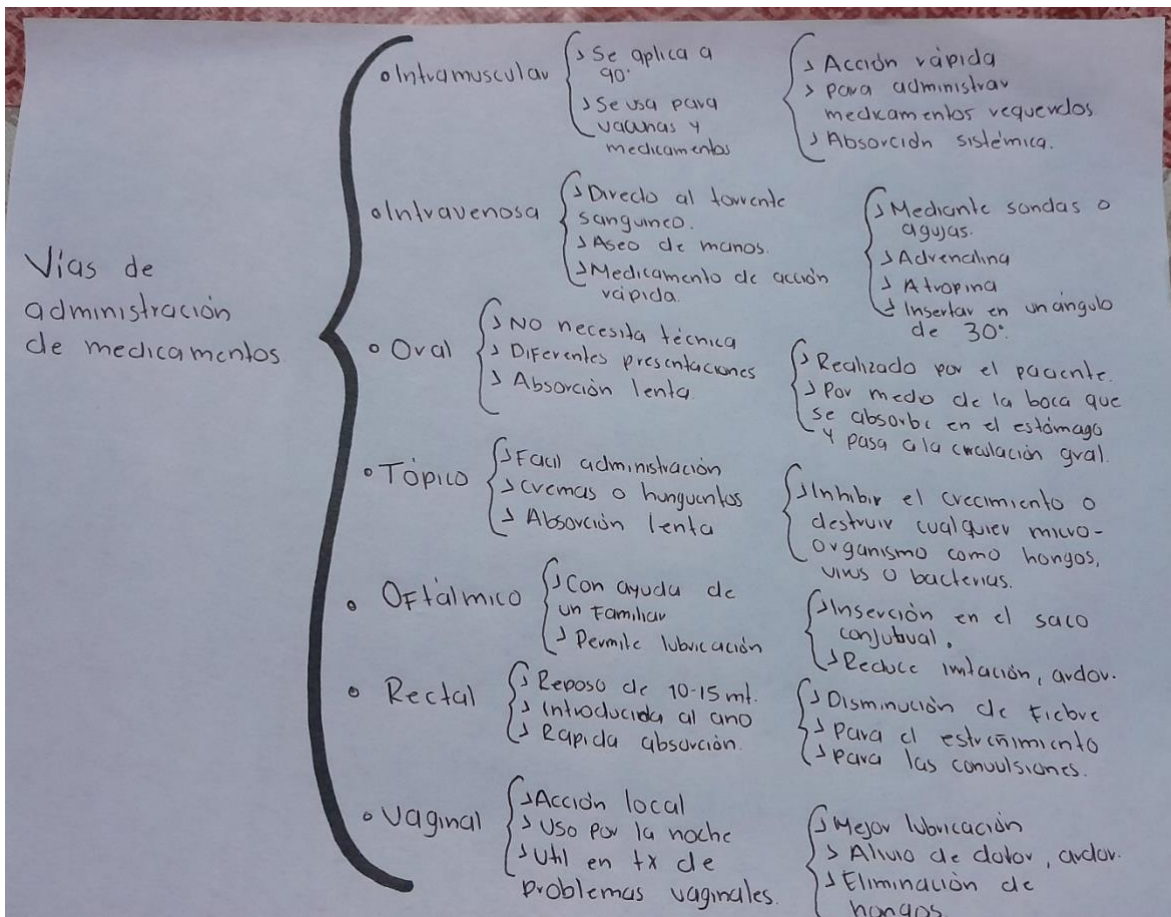 Vías de
administración
de medicamentos
Intramuscular
Se aplica a
90°
Se usa para
vacunas y
medicamentos
Acción rápida
para administrar
medicamentos requeridos.
Absorción sistémica.
Intravenosa
Directo al torrente
sanguineo.
Aseo de manos.
Medicamento de acción
rápida.
Mediante sondas o
agujas.
Adrenalina
Atropina
Insertar en un ángulo
de 30°.
Oral
No necesita técnica
Diferentes presentaciones
Absorción lenta
Realizado por el paciente.
Por medio de la boca que
se absorbe en el estómago
y pasa a la circulación gral.
Tópico
Facil administración
Cremas o hunguentos
Absorción lenta
Inhibir el crecimiento o
destruir cualquier micro-
organismo como hongos,
virus o bacterias.
Oftálmico
Con ayuda de
un Familiar
Permite lubricación
Inserción en el saco
conjubual.
Reduce irritación, ardor.
Rectal
Reposo de 10-15 mt.
Introducida al ano
Rapida absorción.
Disminución de fiebre
para el estreñimiento
para las convulsiones.
Vaginal
Acción local
Uso por la noche
Util en tx de
problemas vaginales.
Mejor lubricación
Alivio de dolor, ardor.
Eliminación de
hongos.